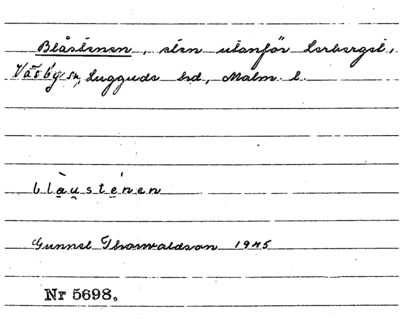 Blåstenen, sten utanför Lerberget,
Väsby sn, Luggude hd, Malm. l.
blàu̯sténen
Gunnel Thorwaldson 1945
Nr 5698.